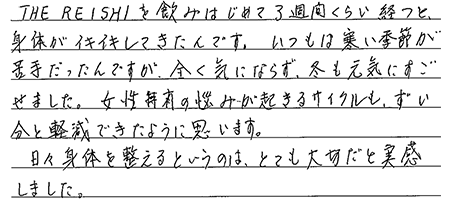 THE REISHIを飲みはじめて3週間くらい経つと、
身体がイキイキしてきたんです。 いつもは寒い季節が
苦手だったんですが、全く気にならず、冬も元気にすご
せました。女性特有の悩みが起きるサイクルも、ずい
分と軽減できたように思います。
日々身体を整えるというのは、とても大切だと実感
しました。